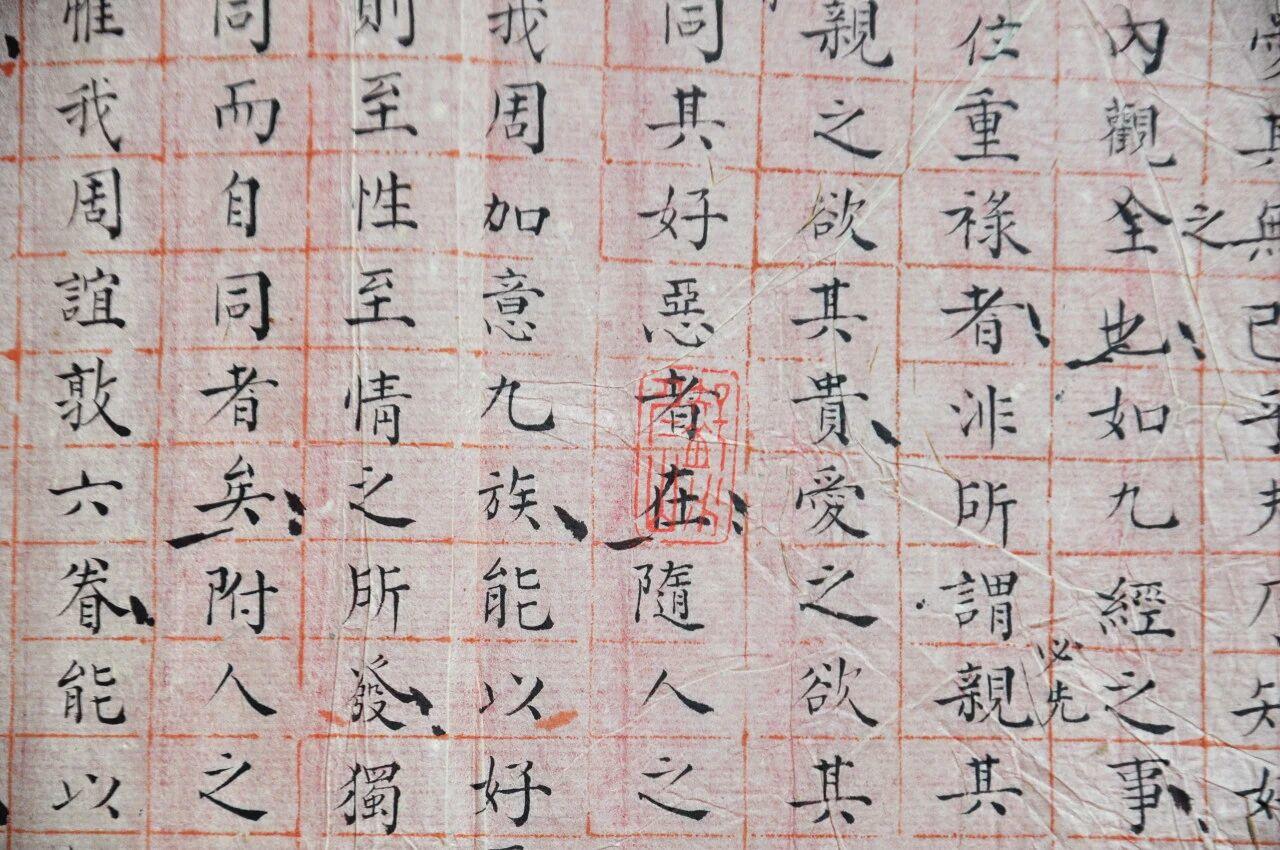 其無己乎
內觀全也如九經之事
之
位重祿者非所謂親其
必先
親之欲其貴愛之欲其
同其好惡者在隨人之
我周加意九族能以好
則至性至情之所發獨
同而自同者矣附人之
惟我周誼敦六眷能以